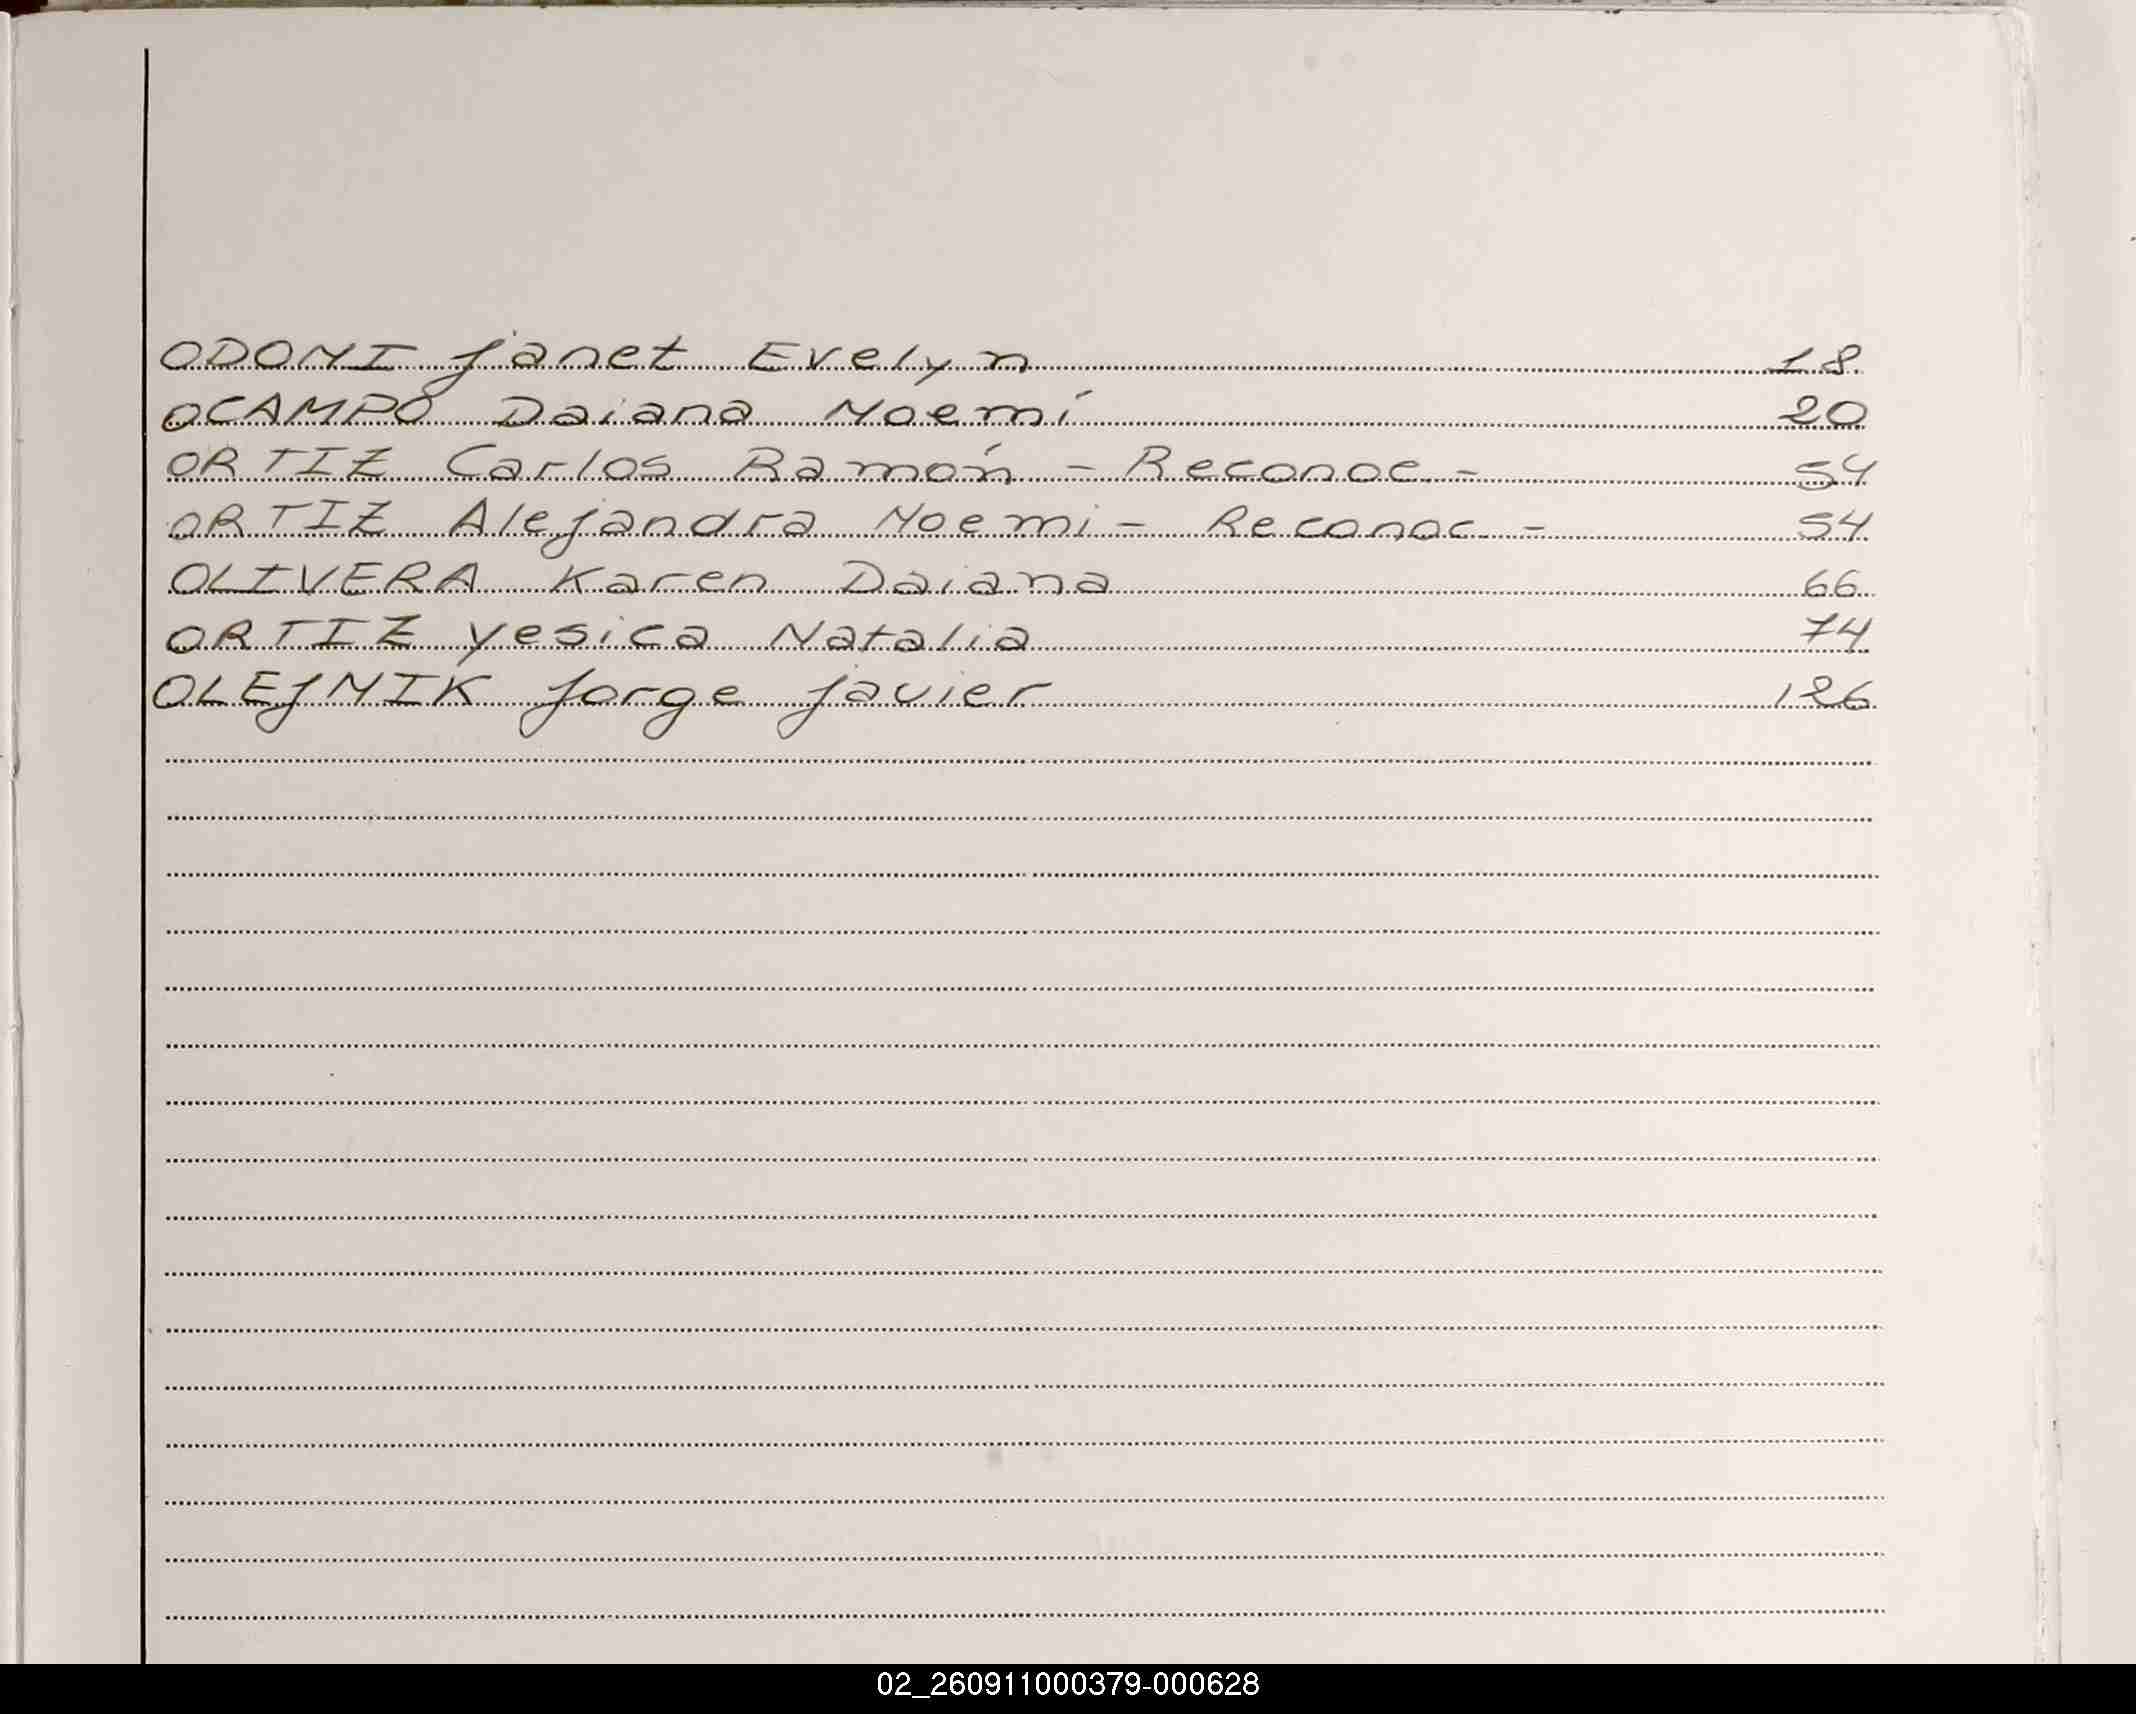 ODONI Janet Evelyn 18
OCAMPO Daiana Noemí 20
ORTIZ Carlos Ramón - Reconoc. - 54
ORTIZ Alejandra Noemi - Reconoc. - 54
OLIVERA Karen Daiana 66
ORTIZ Yesica Natalia 74
OLEJNIK Jorge Javier 126
02_260911000379-000628